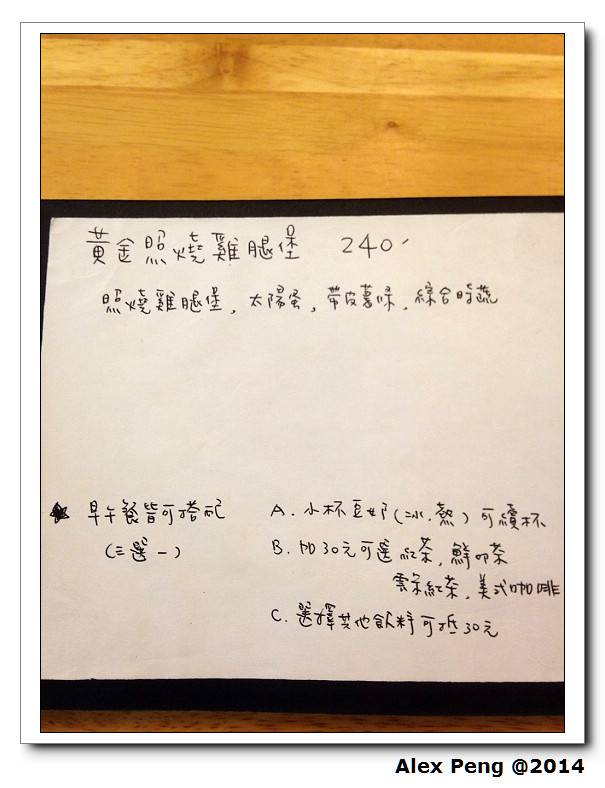 黃金照燒雞腿堡 240
照燒雞腿堡, 太陽蛋, 帶皮薯條, 綜合時蔬
★ 早午餐皆可搭配 A. 小杯豆奶(冰.熱) 可續杯
(三選一) B. 加30元可選紅茶, 鮮奶茶
雲朵紅茶, 美式咖啡
C. 選擇其他飲料可抵30元
Alex Peng @2014